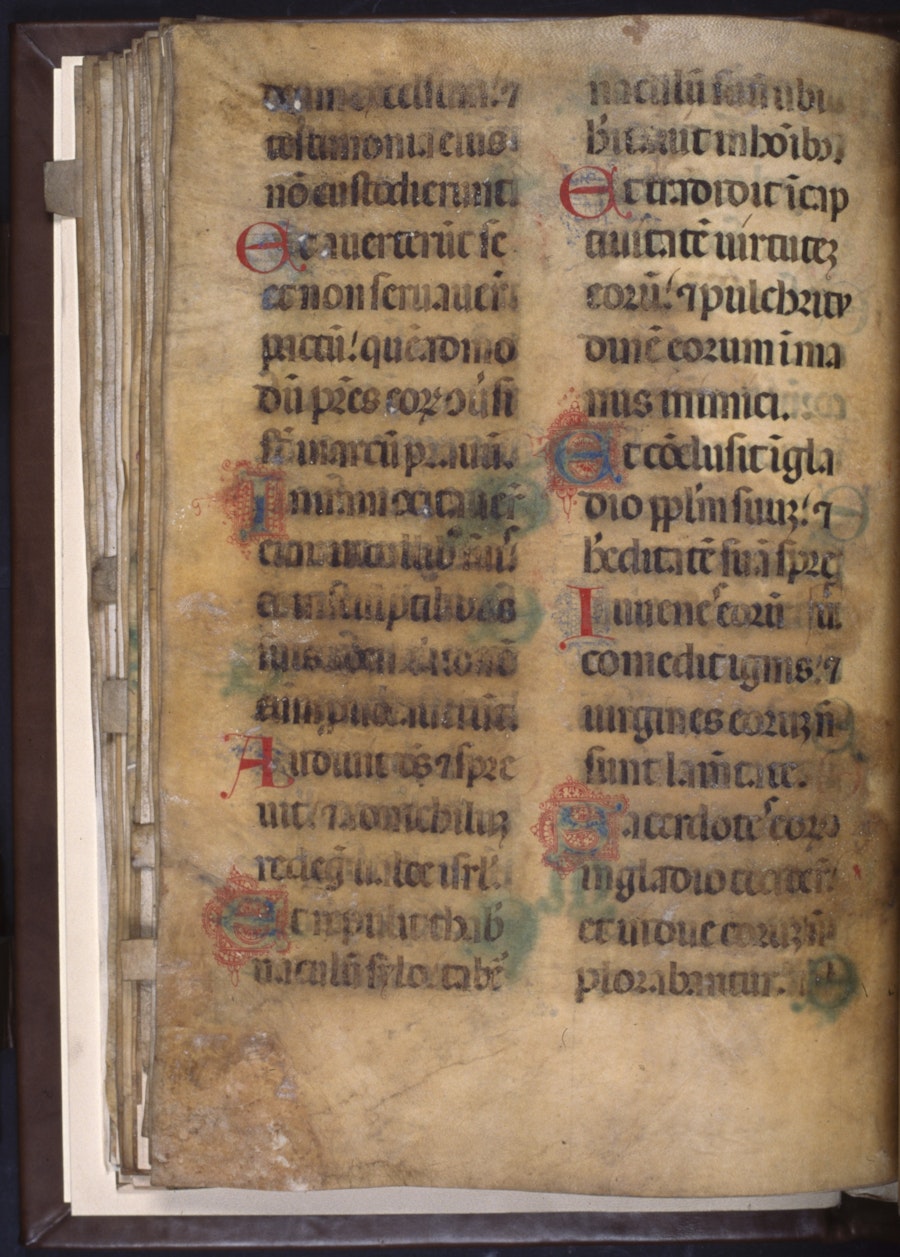 deum excelsum: ⁊
testimonia eius
nō custodierunt.
Et auerterūt se
et non seruauer̄t
pactū: quēadmo
dū pr̄es eoꝝ  ↄ̄uſi
sūt in arcū prauū.
In iram ↄcitauer̄
eum in collibꝰ suis
et in sculptilibus
suis ad
eum
Audiuit d̄s ⁊ spre
uit: ⁊ ad nichiluꝫ
redeg̅ ualde isrl̄.
Et repulit thab̄
naculū sylo: tab̄
naculū suū ubi
h̄itauit in hōibꝫ.
Et tradidit ī cap
tiuitatē uirtuteꝫ
eorū: ⁊ pulchritu
dinē eorum ī ma
nus inimici.
Et cōclusit ī gla
dio pplm̄ suuꝫ: ⁊
h̄editatē suā spreꝫ
Iuueneˢ eorū
comedit ignis: ⁊
uirgines eoruꝫ n̄
sunt lamētate.
Sacerdoteˢ eoꝝ
in gladio ceciderꝫ
et uidue eoruꝫ n̄
plorabantur.